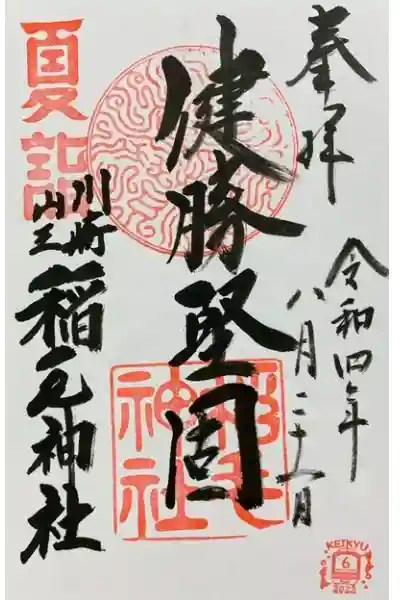 奉拝
令和四年
八月二十一日
健勝堅固
稲毛
神社
夏詣
川崎
山王
稲毛神社
KEIKYU
6
2022